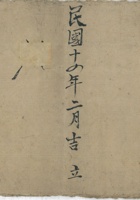 民國十四年二月吉立